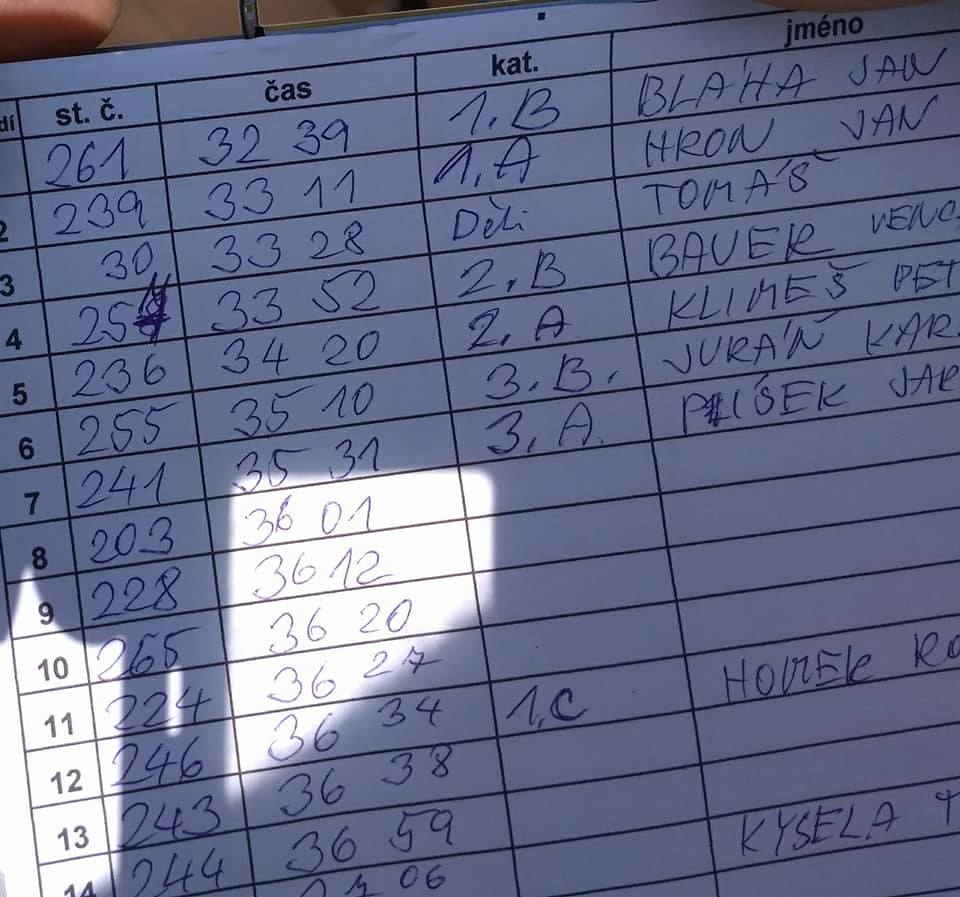 dí st. č. čas kat. jméno
261 32 39 1.B BLÁHA JAN
2 239 33 11 1.A HRON JAN
3 30 33 28 Děti TOMÁŠ
4 254 33 52 2.B BAUER VENC
5 236 34 20 2.A KLIMEŠ PET
6 255 35 10 3.B. JURÁŇ KAR
7 241 35 31 3.A. PLÍŠEK JAR
8 203 36 01
9 228 36 12
10 265 36 20
11 224 36 27
12 246 36 34 1.C RO
13 243 36 38
14 244 36 59
06 KYSELA T